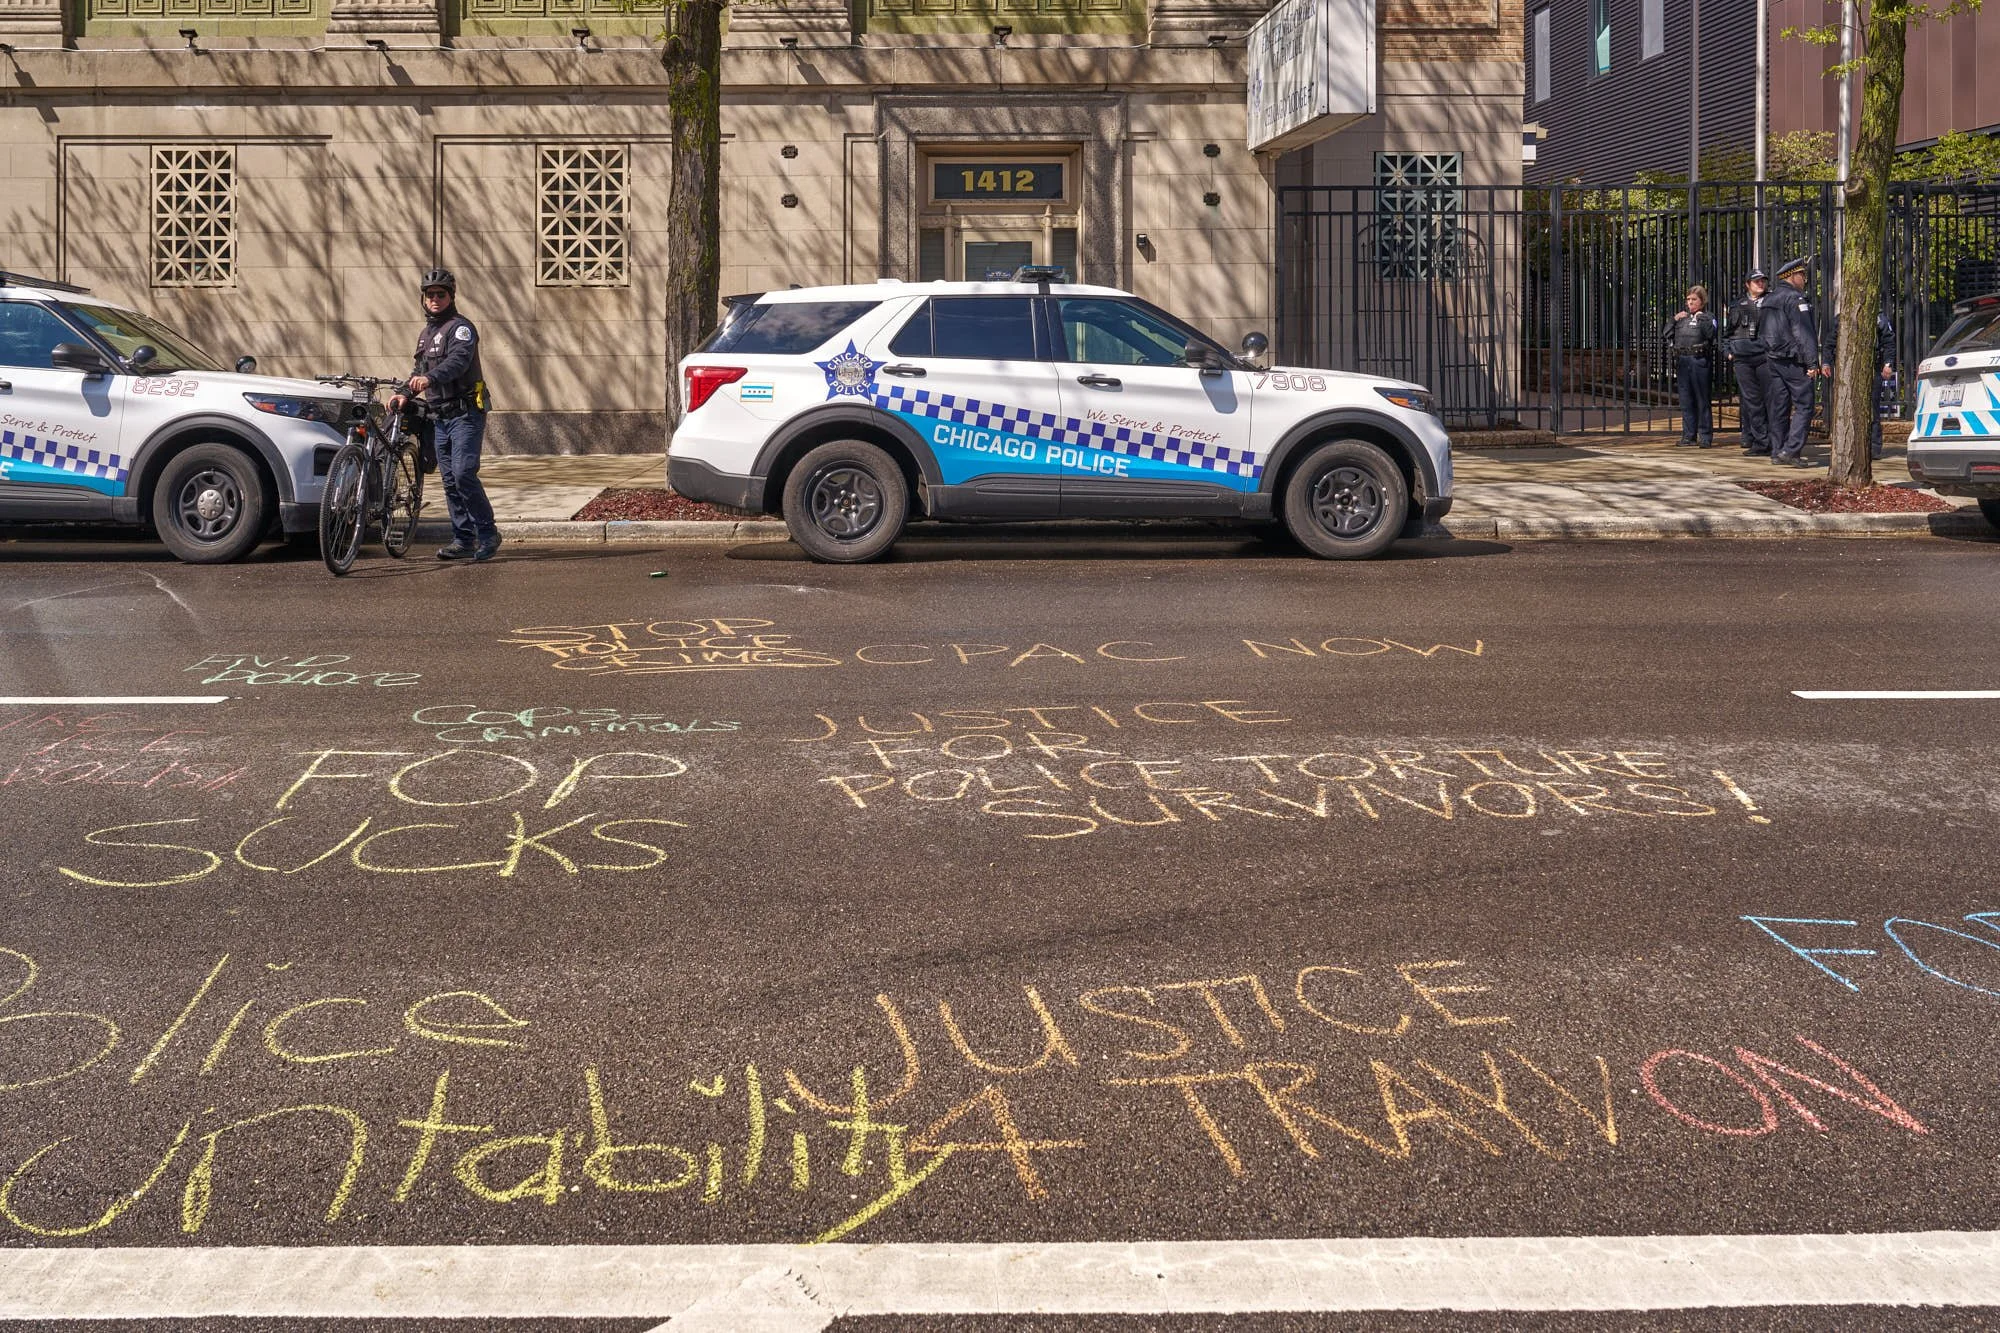 1412
8232
7908
CHICAGO
POLICE
We Serve & Protect
Serve & Protect
CHICAGO POLICE
E
77
STOP
POLICE
CRIMES
CPAC NOW
FIND
COPS=
CRIMINALS
ICE
POLISH
FOP
SUCKS
JUSTICE
FOR
POLICE TORTURE
SURVIVORS!
FO
Police
untability
JUSTICE
4 TRAYVON